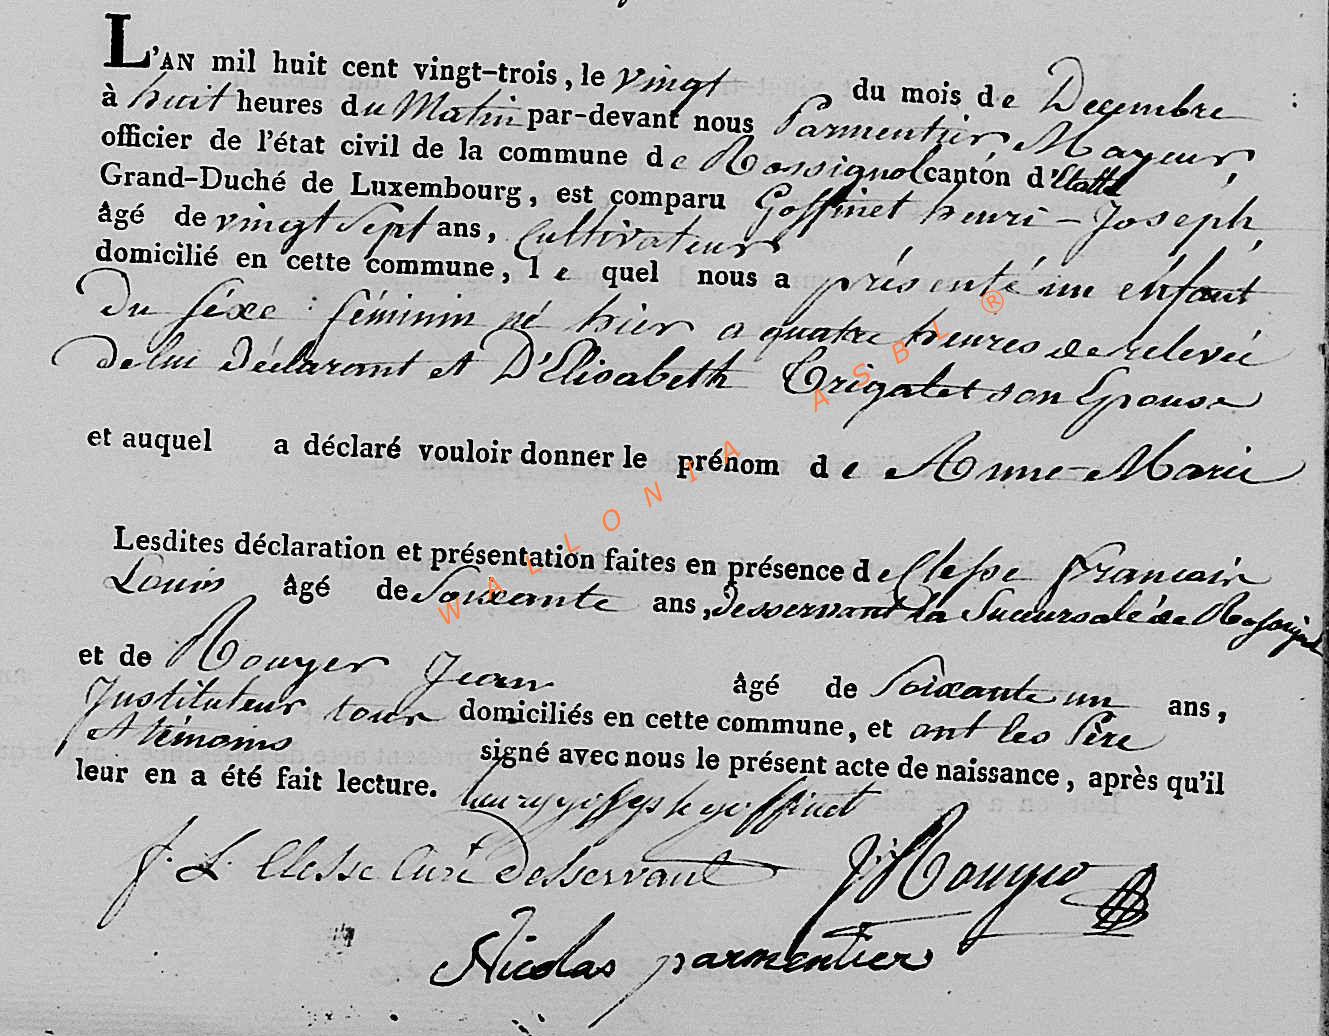 L'AN mil huit cent vingt-trois, le vingt du mois de Decembre
à huit heures du Matin par-devant nous Parmentier Mayeur,
officier de l'état civil de la commune de Rossignol canton d'Etalle
Grand-Duché de Luxembourg, est comparu Goffinet henri-Joseph,
âgé de vingt sept ans, Cultivateur
domicilié en cette commune, le quel nous a présenté un enfant
du séxe : féminin né hier a quatre heures de relevée
de lui Déclarant et D'Elisabeth Trigalet son Epouse
et auquel a déclaré vouloir donner le prénom de Anne-Marie
Lesdites déclaration et présentation faites en présence de Clesse francois
Louis âgé de Soixante ans, desservant la Succursale de Rossignol
et de Rouyer Jean âgé de Soixante un ans,
Instituteur tous domiciliés en cette commune, et ont les Père
et témoins signé avec nous le présent acte de naissance, après qu'il
leur en a été fait lecture. goffinet
f. L. Clesse Curé desservant J. Rouyer
Nicolas parmentier
WALLONIA ASBL ®